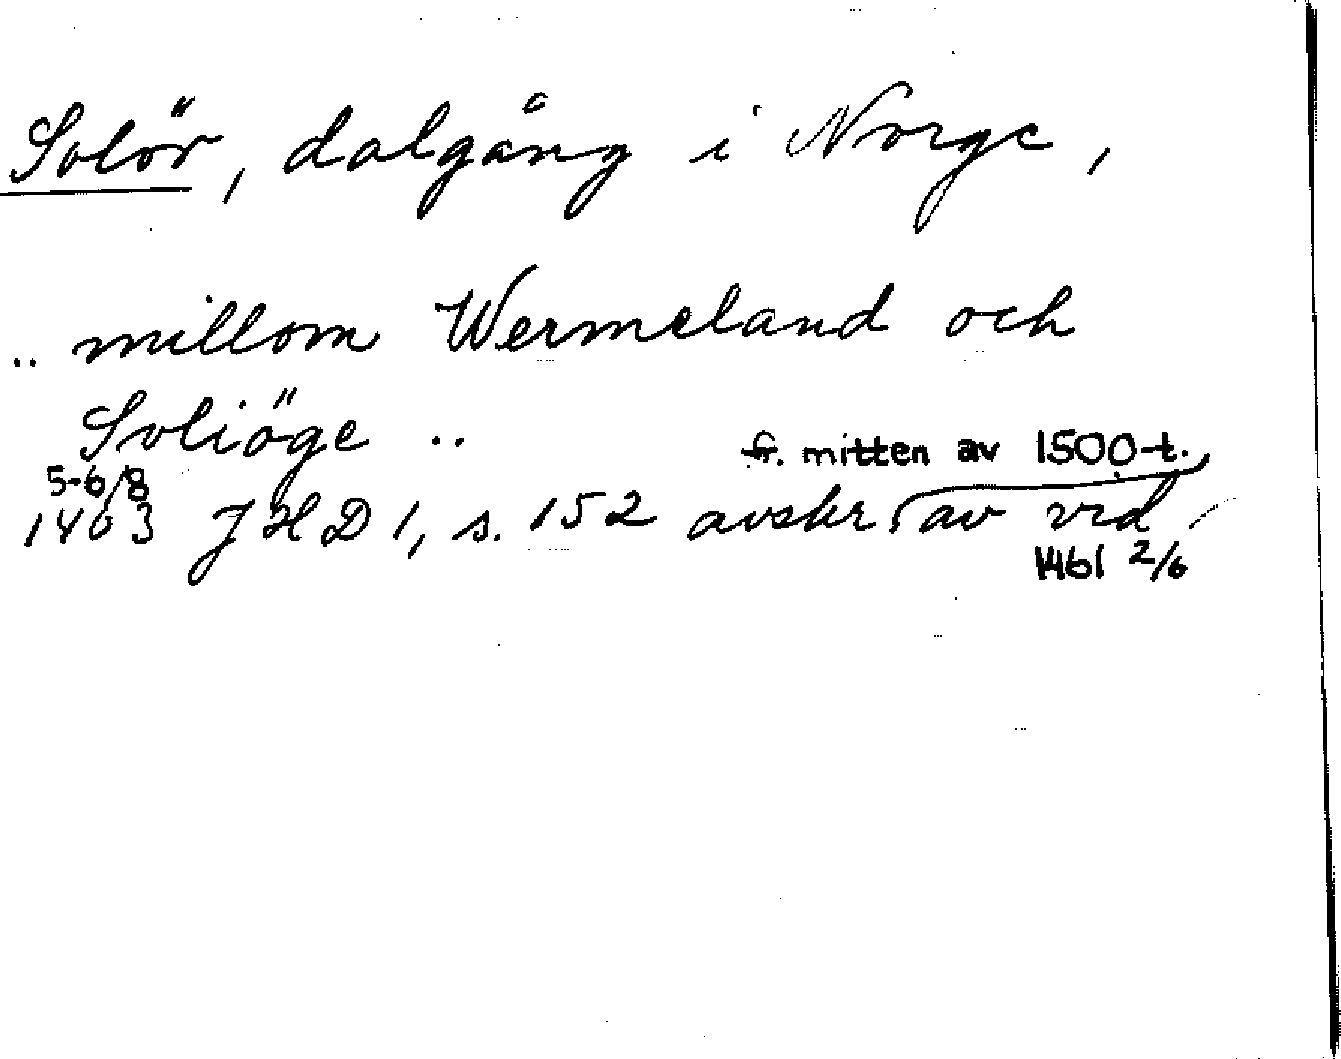 Solör, dalgång i Norge,
.. millom Wermeland och
Soliöge ..
fr. mitten av 1500-t.
5-6/8
1403 JHD 1, s. 152 avskr av vid
1461 2/6